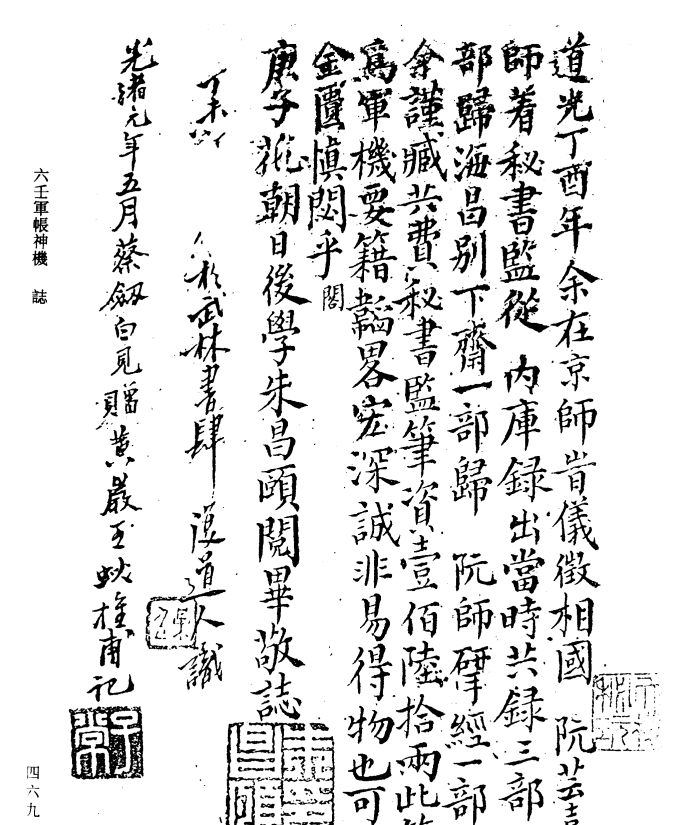 道光丁酉年余在京師旹儀徵相國 阮芸
師着秘書監從 內庫録出當時共録三部
部歸海昌別下齋一部歸 阮師揅經一部
余謹藏共費秘書監筆資壹佰陸拾兩此
爲軍機要籍韜畧宏深誠非易得物也可
金匱慎閟乎 閣
庚子花朝日後學朱昌頤閱畢敬誌
於武林書肆 道人識
光緒元年五月蔡 白見贈黃巖王 甫記
六壬軍帳神機 誌
四六九